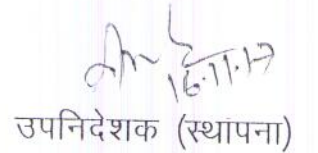 16.11.17
उपनिदेशक (स्थापना)